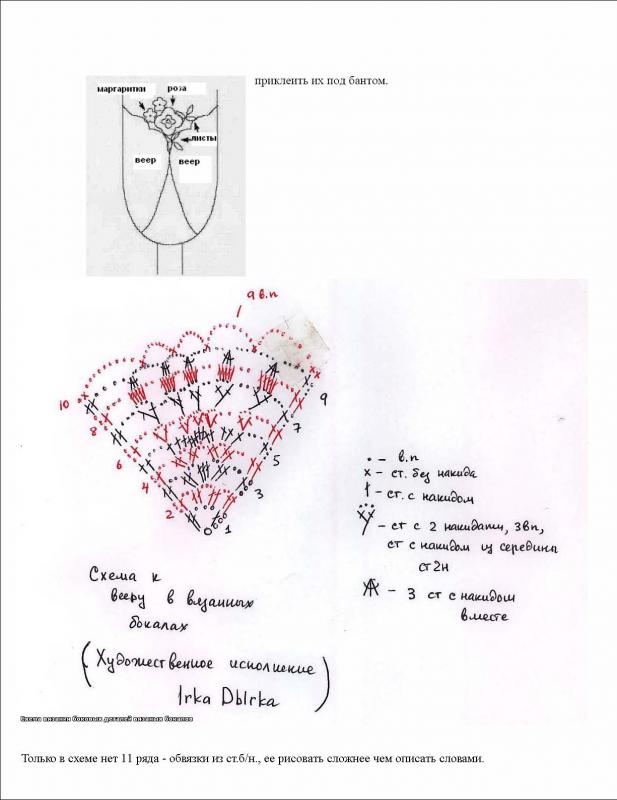 приклеить их под бантом.
маргаритки роза
листы
веер веер
9 в.п
10
9
8
7
6
5
4
3
2
1
• – в.п
х – ст. без накида
† – ст. с накидом
– ст с 2 накидами, 3вп,
ст с накидом из середины
ст2н
– 3 ст с накидом
вместе
Схема к
вееру в вязанных
бокалах
(Художественное исполнение
Irka DbIrka)
Схема вязания боковых деталей вязаных бокалов
Только в схеме нет 11 ряда - обвязки из ст.б/н., ее рисовать сложнее чем описать словами.